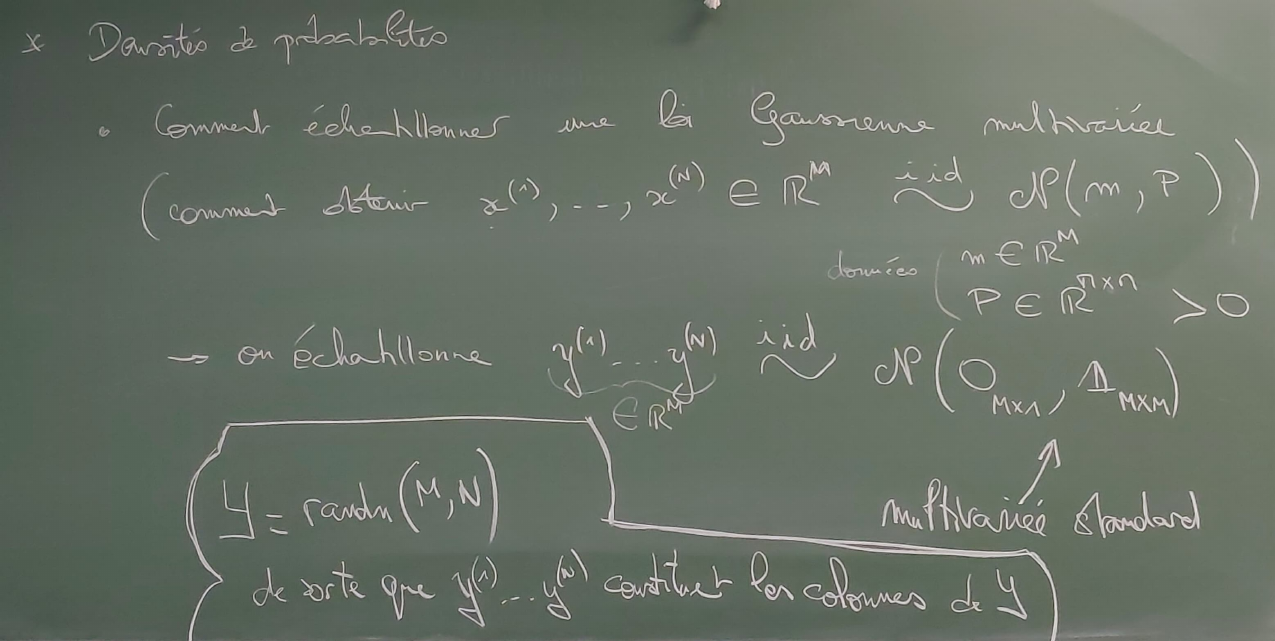 x Densités de probabilités
• Comment échantillonner une loi Gaussienne multivariée
(comment obtenir x^(1), ..., x^(N) ∈ ℝ^M iid ~ N(m, P))
données ( m ∈ ℝ^M
P ∈ ℝ^(M×M) > 0
→ on échantillonne y^(1) ... y^(N) iid ~ N(0_M×1, 1_M×M)
∈ ℝ^M
multivariée standard
Y = randn(M,N)
de sorte que y^(1) ... y^(N) constituent les colonnes de Y